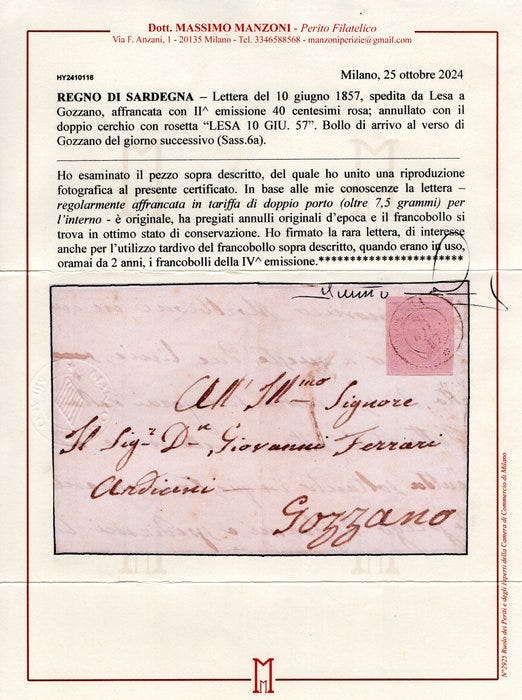 Dott. MASSIMO MANZONI - Perito Filatelico
Via F. Anzani, 1 - 20135 Milano - Tel. 3346588568 - manzoniperizie@gmail.com
HY2410118
Milano, 25 ottobre 2024
REGNO DI SARDEGNA – Lettera del 10 giugno 1857, spedita da Lesa a
Gozzano, affrancata con II^ emissione 40 centesimi rosa; annullato con il
doppio cerchio con rosetta “LESA 10 GIU. 57”. Bollo di arrivo al verso di
Gozzano del giorno successivo (Sass.6a).
Ho esaminato il pezzo sopra descritto, del quale ho unito una riproduzione
fotografica al presente certificato. In base alle mie conoscenze la lettera –
regolarmente affrancata in tariffa di doppio porto (oltre 7,5 grammi) per
l’interno - è originale, ha pregiati annulli originali d’epoca e il francobollo si
trova in ottimo stato di conservazione. Ho firmato la rara lettera, di interesse
anche per l’utilizzo tardivo del francobollo sopra descritto, quando erano in uso,
oramai da 2 anni, i francobolli della IV^ emissione.**********************
All' Ill.mo Signore
Il Sig.r D.n Giovanni Ferrari
Ardicini
Gozzano
N°2925 Ruolo dei Periti e degli Esperti della Camera di Commercio di Milano
M